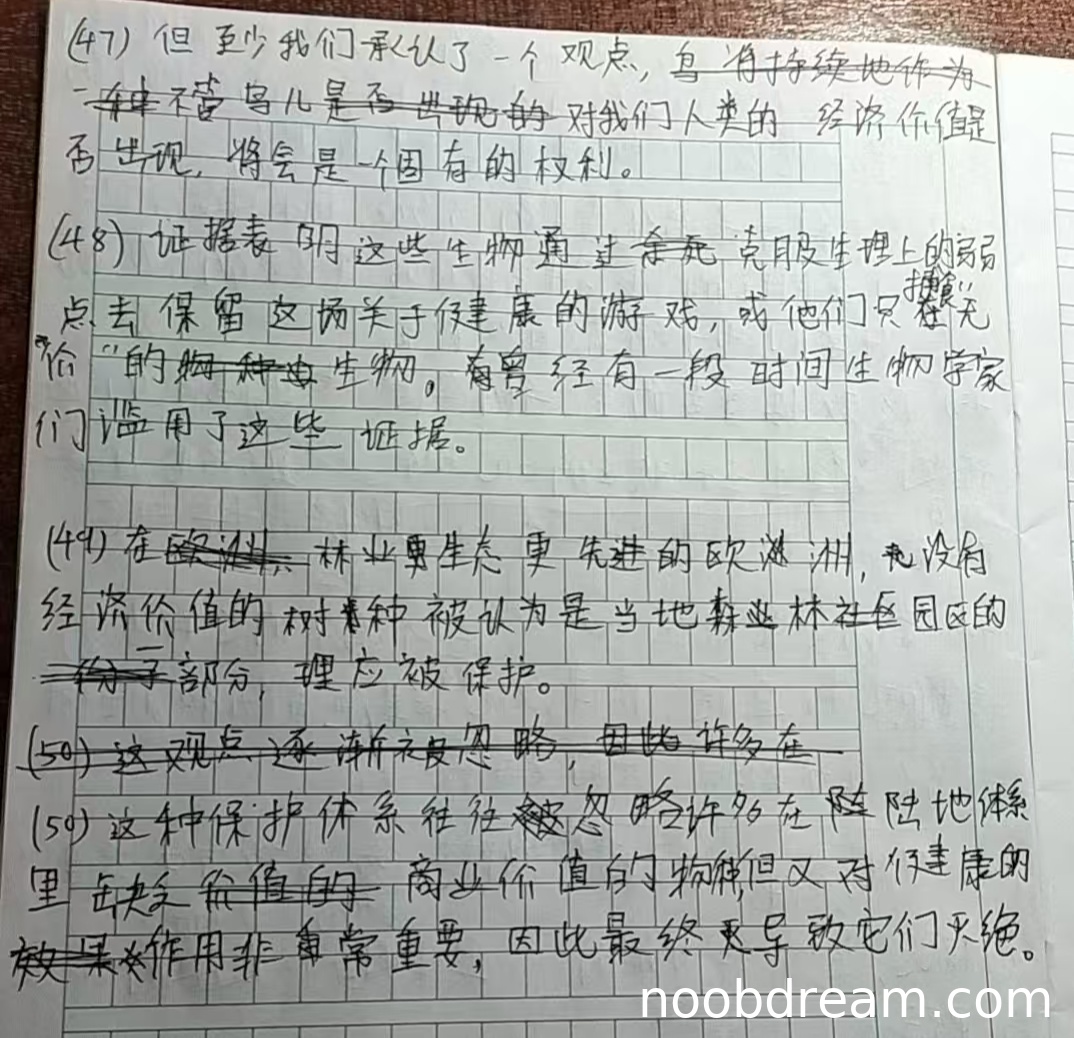 (47) 但至少我们承认了一个观点, 鸟将持续地作为
一种不管鸟儿是否出现的对我们人类的 经济价值是
否出现, 将会是一个固有的权利。
(48) 证据表明这些生物通过杀死克服生理上的弱
点去保留这场关于健康的游戏, 或他们只捕食"无
价"的物种由生物。曾经有一段时间生物学家
们滥用了这些证据。
(49) 在欧洲, 林业生态更先进的欧洲, 没有
经济价值的树种被认为是当地森林社区园区的
一份子部分, 理应被保护。
(50) 这观点逐渐被忽略, 因此许多在
(50) 这种保护体系往往被忽略许多在陆地体系
里缺乏价值的商业价值的物种,但又对健康的
效果作用非常重要, 因此最终导致它们灭绝。
noobdream.com